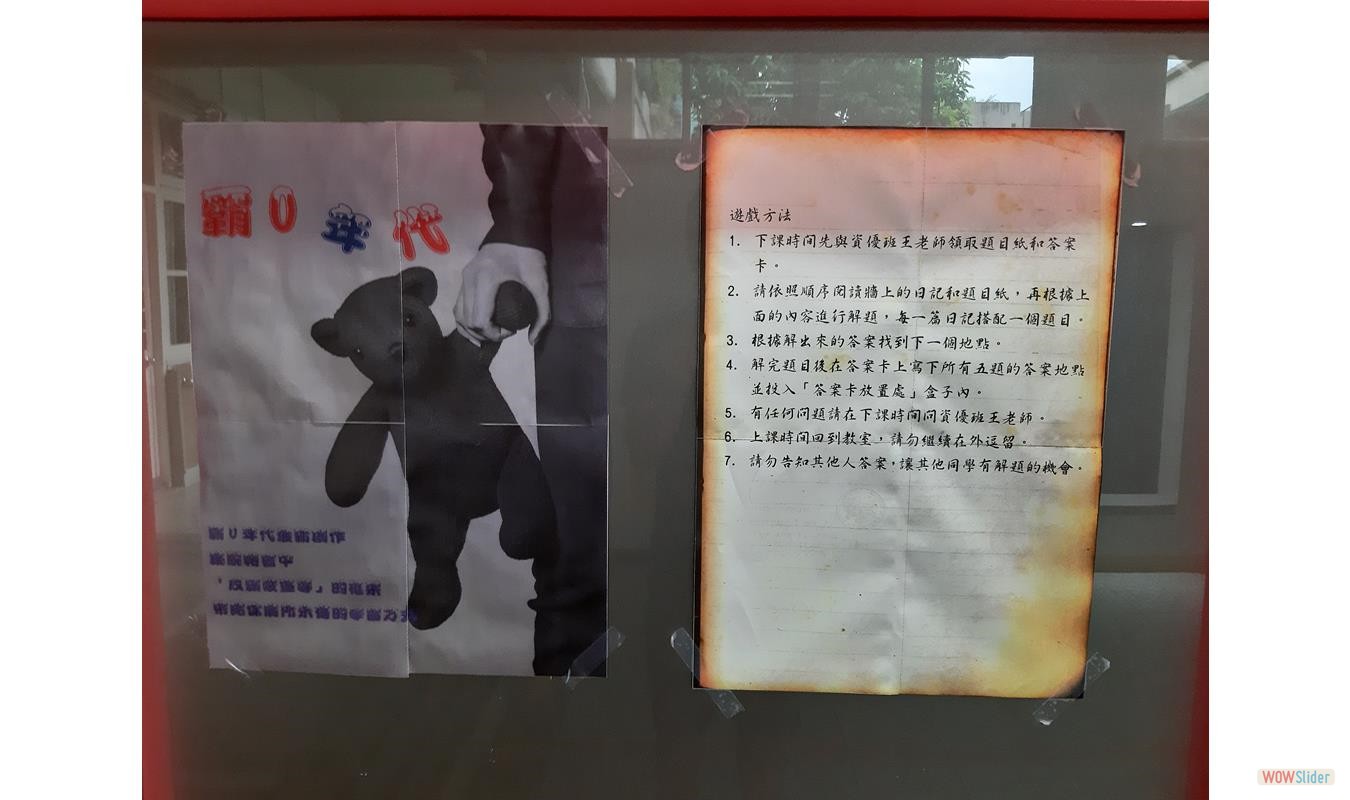 霸0年代
霸0年代
「反
」的
的
遊戲方法
1. 下課時間先與資優班王老師領取題目紙和答案
卡。
2. 請依照順序閱讀牆上的日記和題目紙，再根據上
面的內容進行解題，每一篇日記搭配一個題目。
3. 根據解出來的答案找到下一個地點。
4. 解完題目後在答案卡上寫下所有五題的答案地點
並投入「答案卡放置處」盒子內。
5. 有任何問題請在下課時間問資優班王老師。
6. 上課時間回到教室，請勿繼續在外逗留。
7. 請勿告知其他人答案，讓其他同學有解題的機會。
WOWSlider